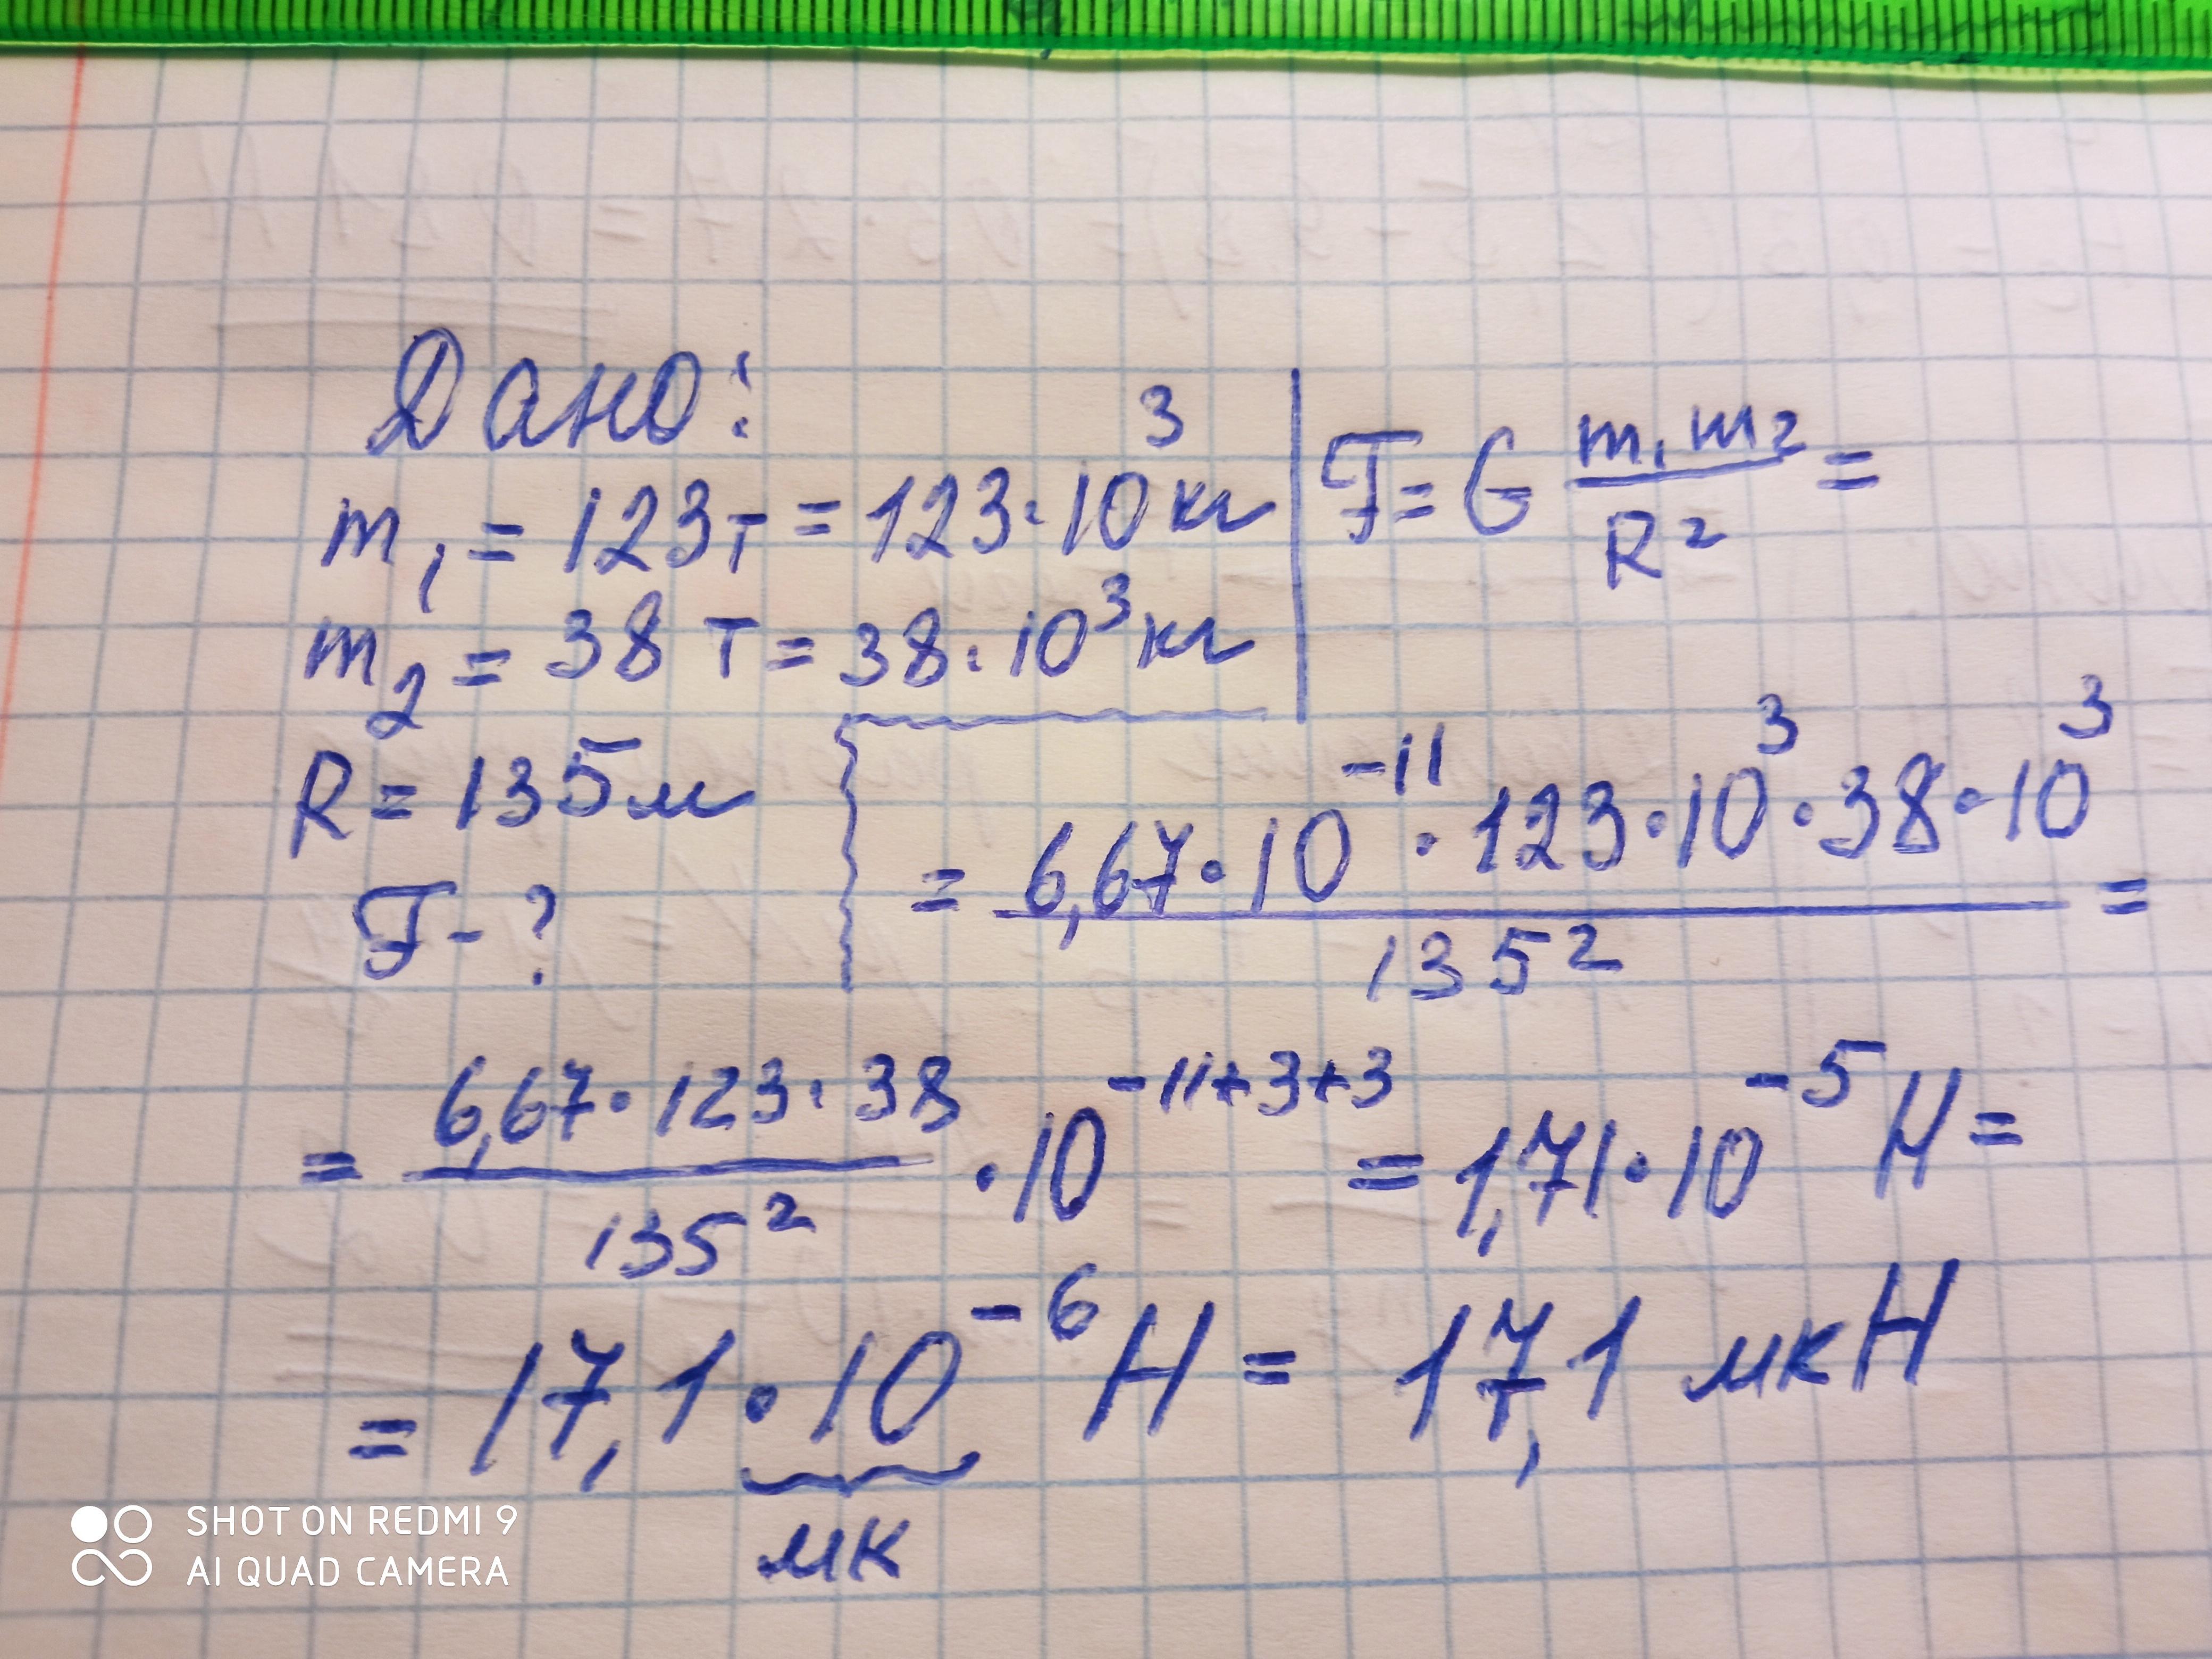 Дано:
m₁ = 123т = 123·10³ кг
m₂ = 38 т = 38·10³ кг
R = 135 м
F - ?
F = G m₁ m₂ / R² =
= 6,67·10⁻¹¹ · 123·10³ · 38·10³ / 135² =
= 6,67·123·38 / 135² · 10⁻¹¹⁺³⁺³ = 1,71·10⁻⁵ Н =
= 17,1·10⁻⁶ Н = 17,1 мкН
мк
SHOT ON REDMI 9
AI QUAD CAMERA